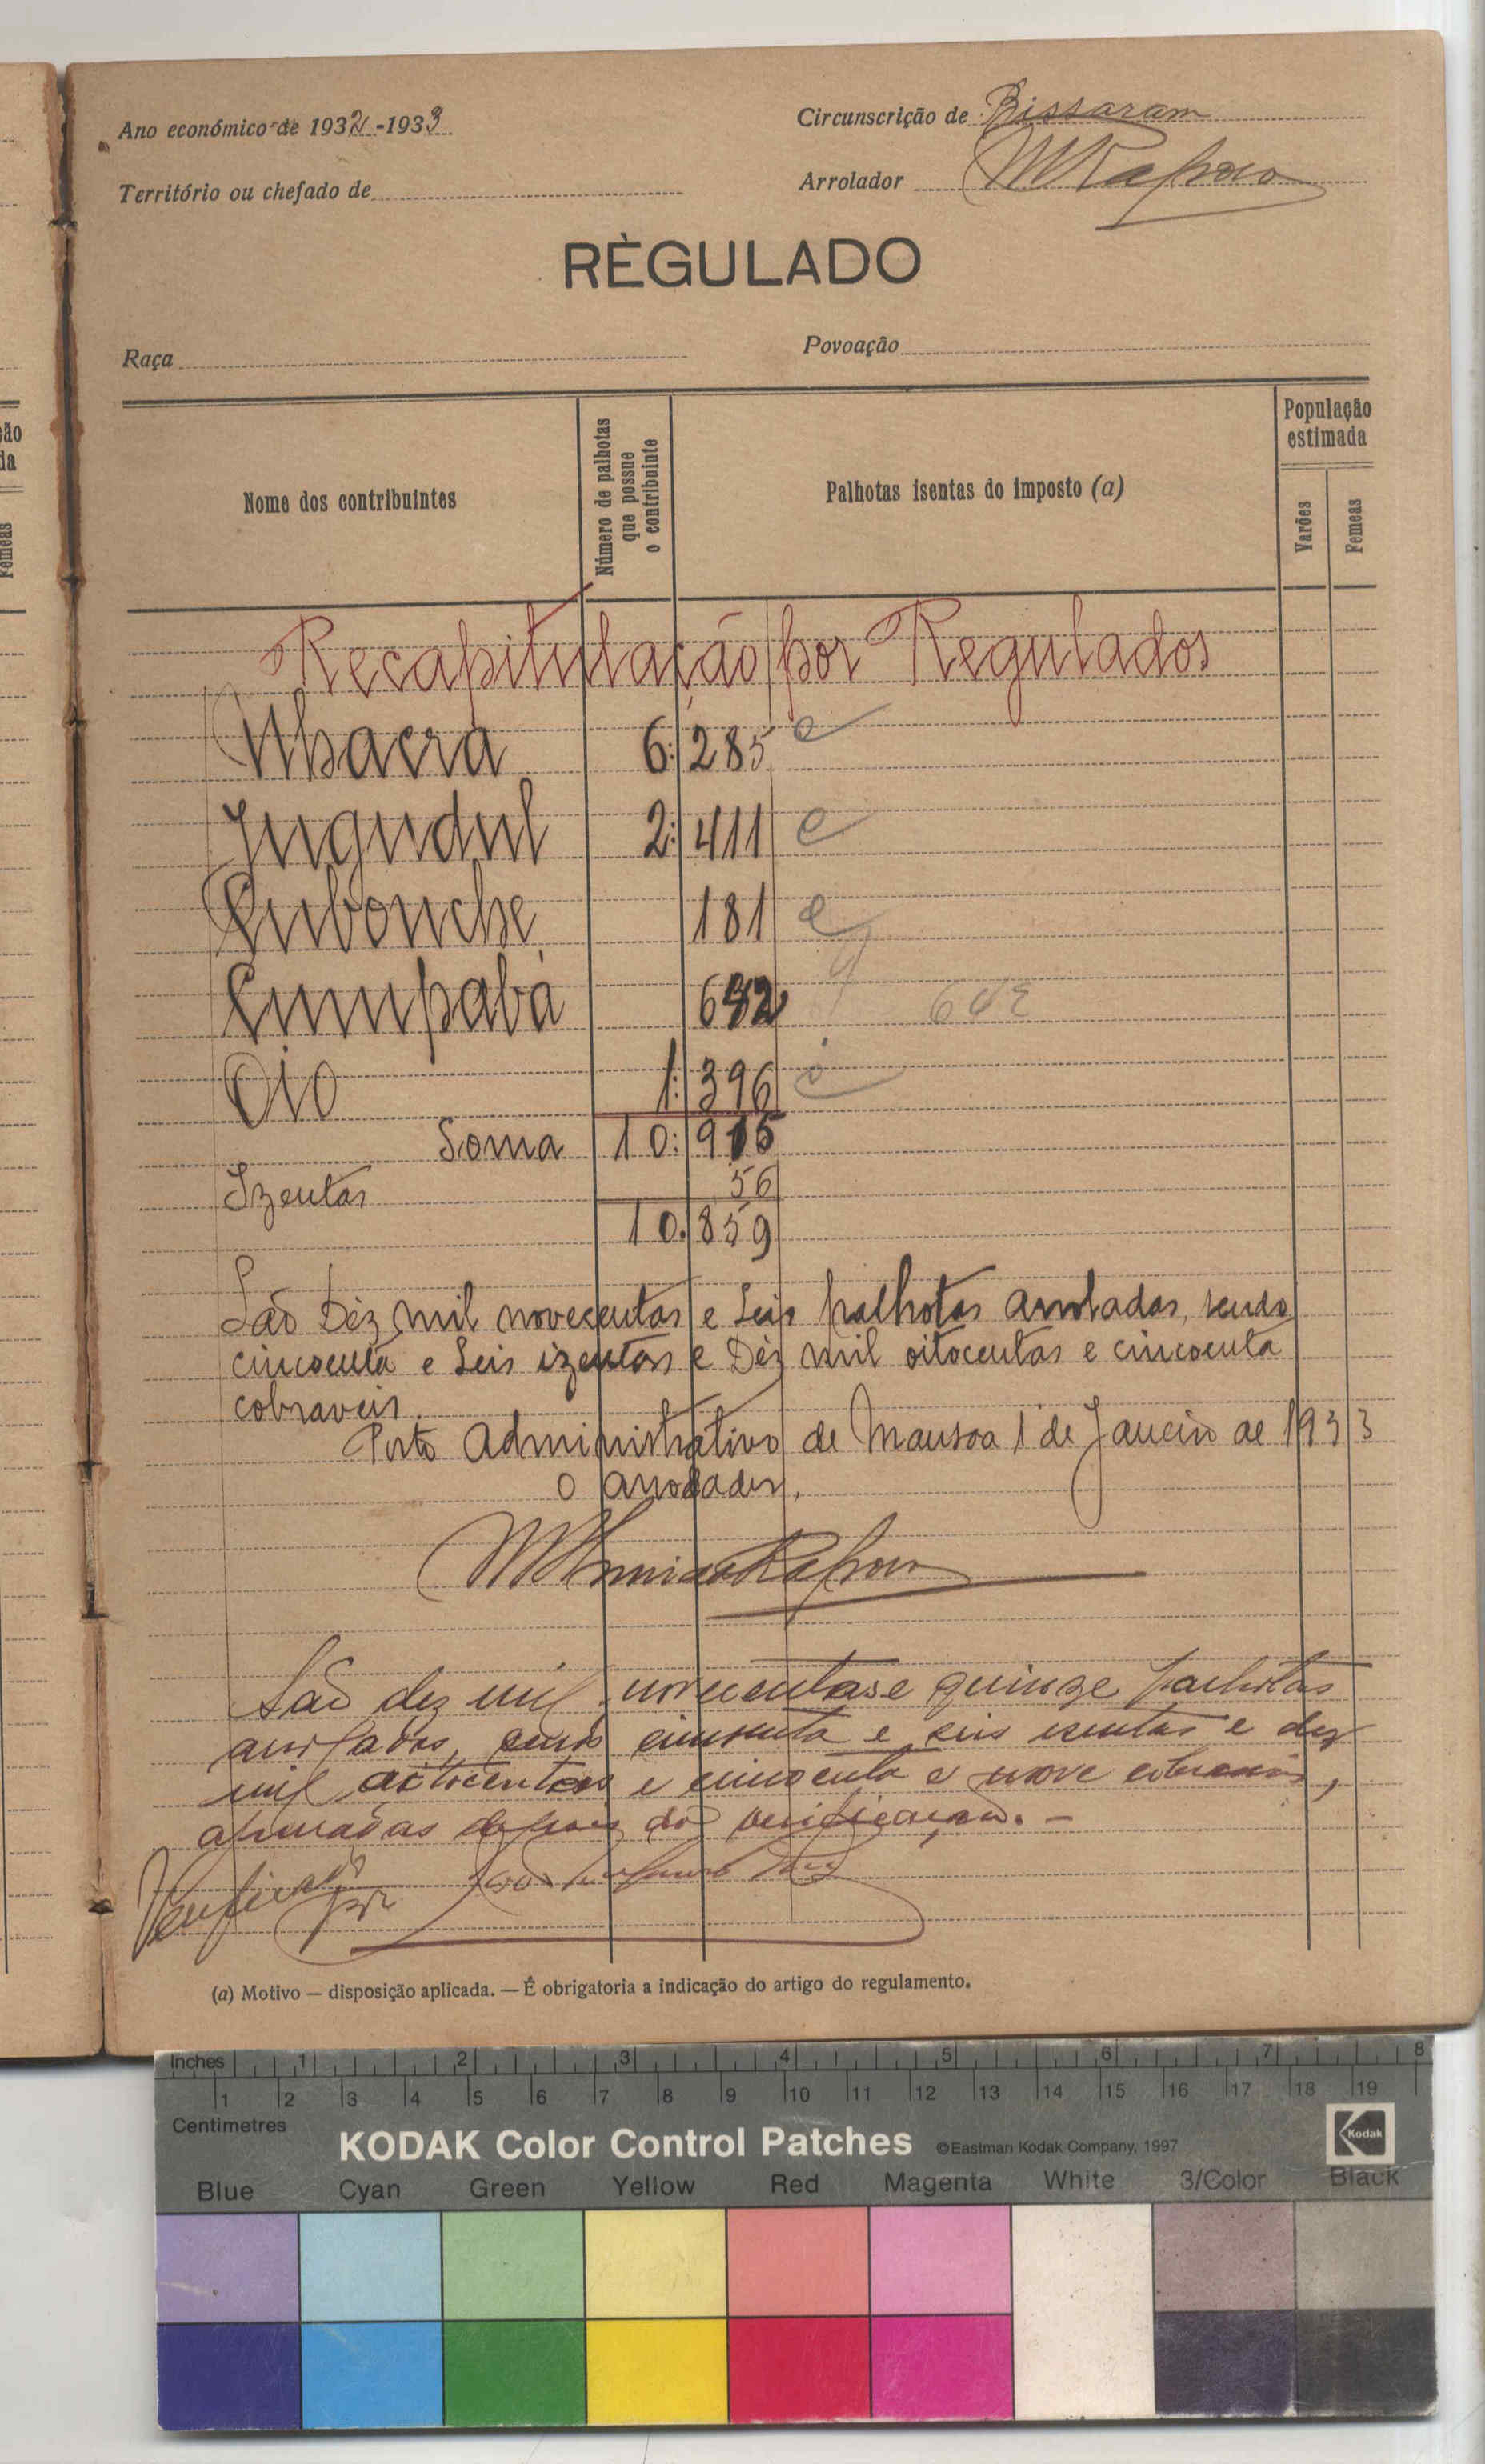 Ano económico de 1932-1933
Circunscrição de Bissaram
Território ou chefado de
Arrolador
RÈGULADO
Raça
Povoação
Nome dos contribuintes
Número de palhotas que possue o contribuinte
Palhotas isentas do imposto (a)
População estimada
Varões
Femeas
Recapitulação por Regulados
Nhacra 6:285
Jugudul 2:411
Cubonche 181
Cumpabá 642 642
Oio 1:396
Soma 10:915
Izentas 56
10.859
São Déz mil novecentas e Seis palhotas arroladas, sendo
cincoenta e Seis izentas e Déz mil oitocentas e cincoenta
cobraveis.
Posto Administrativo de Mansoa 1 de Janeiro de 1933
O arrolador,
São dez mil novecentas e quinze palhotas
arroladas, sendo cincoenta e seis isentas e dez
mil oitocentas e cincoenta e nove cobraveis,
apuradas depois da verificação. —
Verificado por João
(a) Motivo — disposição aplicada. — É obrigatoria a indicação do artigo do regulamento.
ão
da
Femeas
Inches 1 2 3 4 5 6 7 8
1 2 3 4 5 6 7 8 9 10 11 12 13 14 15 16 17 18 19
Centimetres
KODAK Color Control Patches ©Eastman Kodak Company, 1997 Kodak
Blue Cyan Green Yellow Red Magenta White 3/Color Black